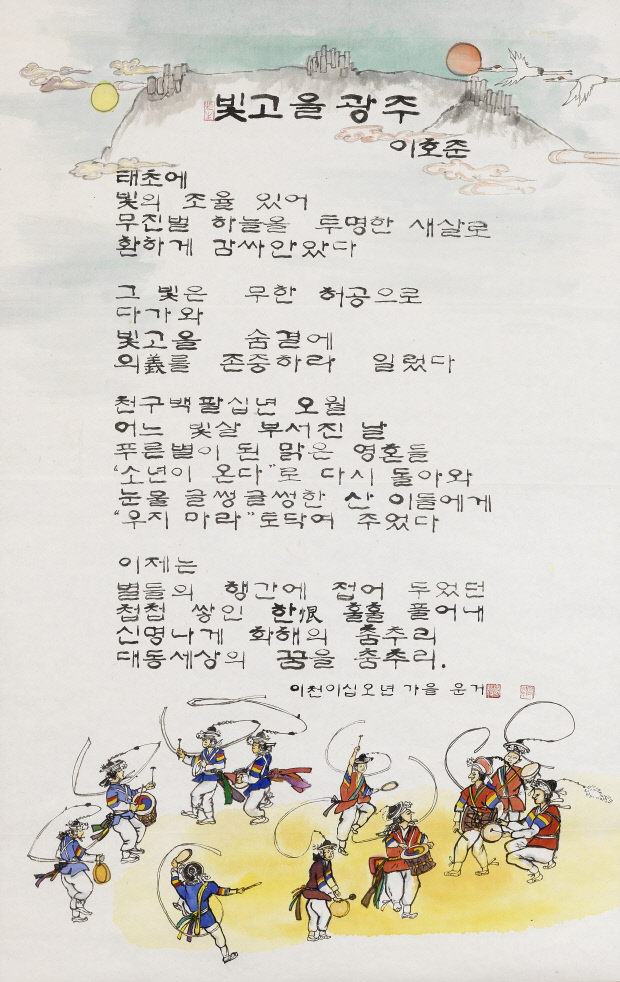 빛고을 광주
이호준
태초에
빛의 조율 있어
무진벌 하늘을 투명한 새살로
환하게 감싸안았다
그 빛은 무한 허공으로
다가와
빛고을 숨결에
의義를 존중하라 일렀다
천구백팔십년 오월
어느 빛살 부서진 날
푸른별이 된 맑은 영혼들
“소년이 온다”로 다시 돌아와
눈물 글썽글썽한 산 이들에게
“우지 마라”토닥여 주었다
이제는
별들의 행간에 접어 두었던
첩첩 쌓인 한恨 훌훌 풀어내
신명나게 화해의 춤추리
대동세상의 꿈을 춤추리.
이천이십오년 가을 운거